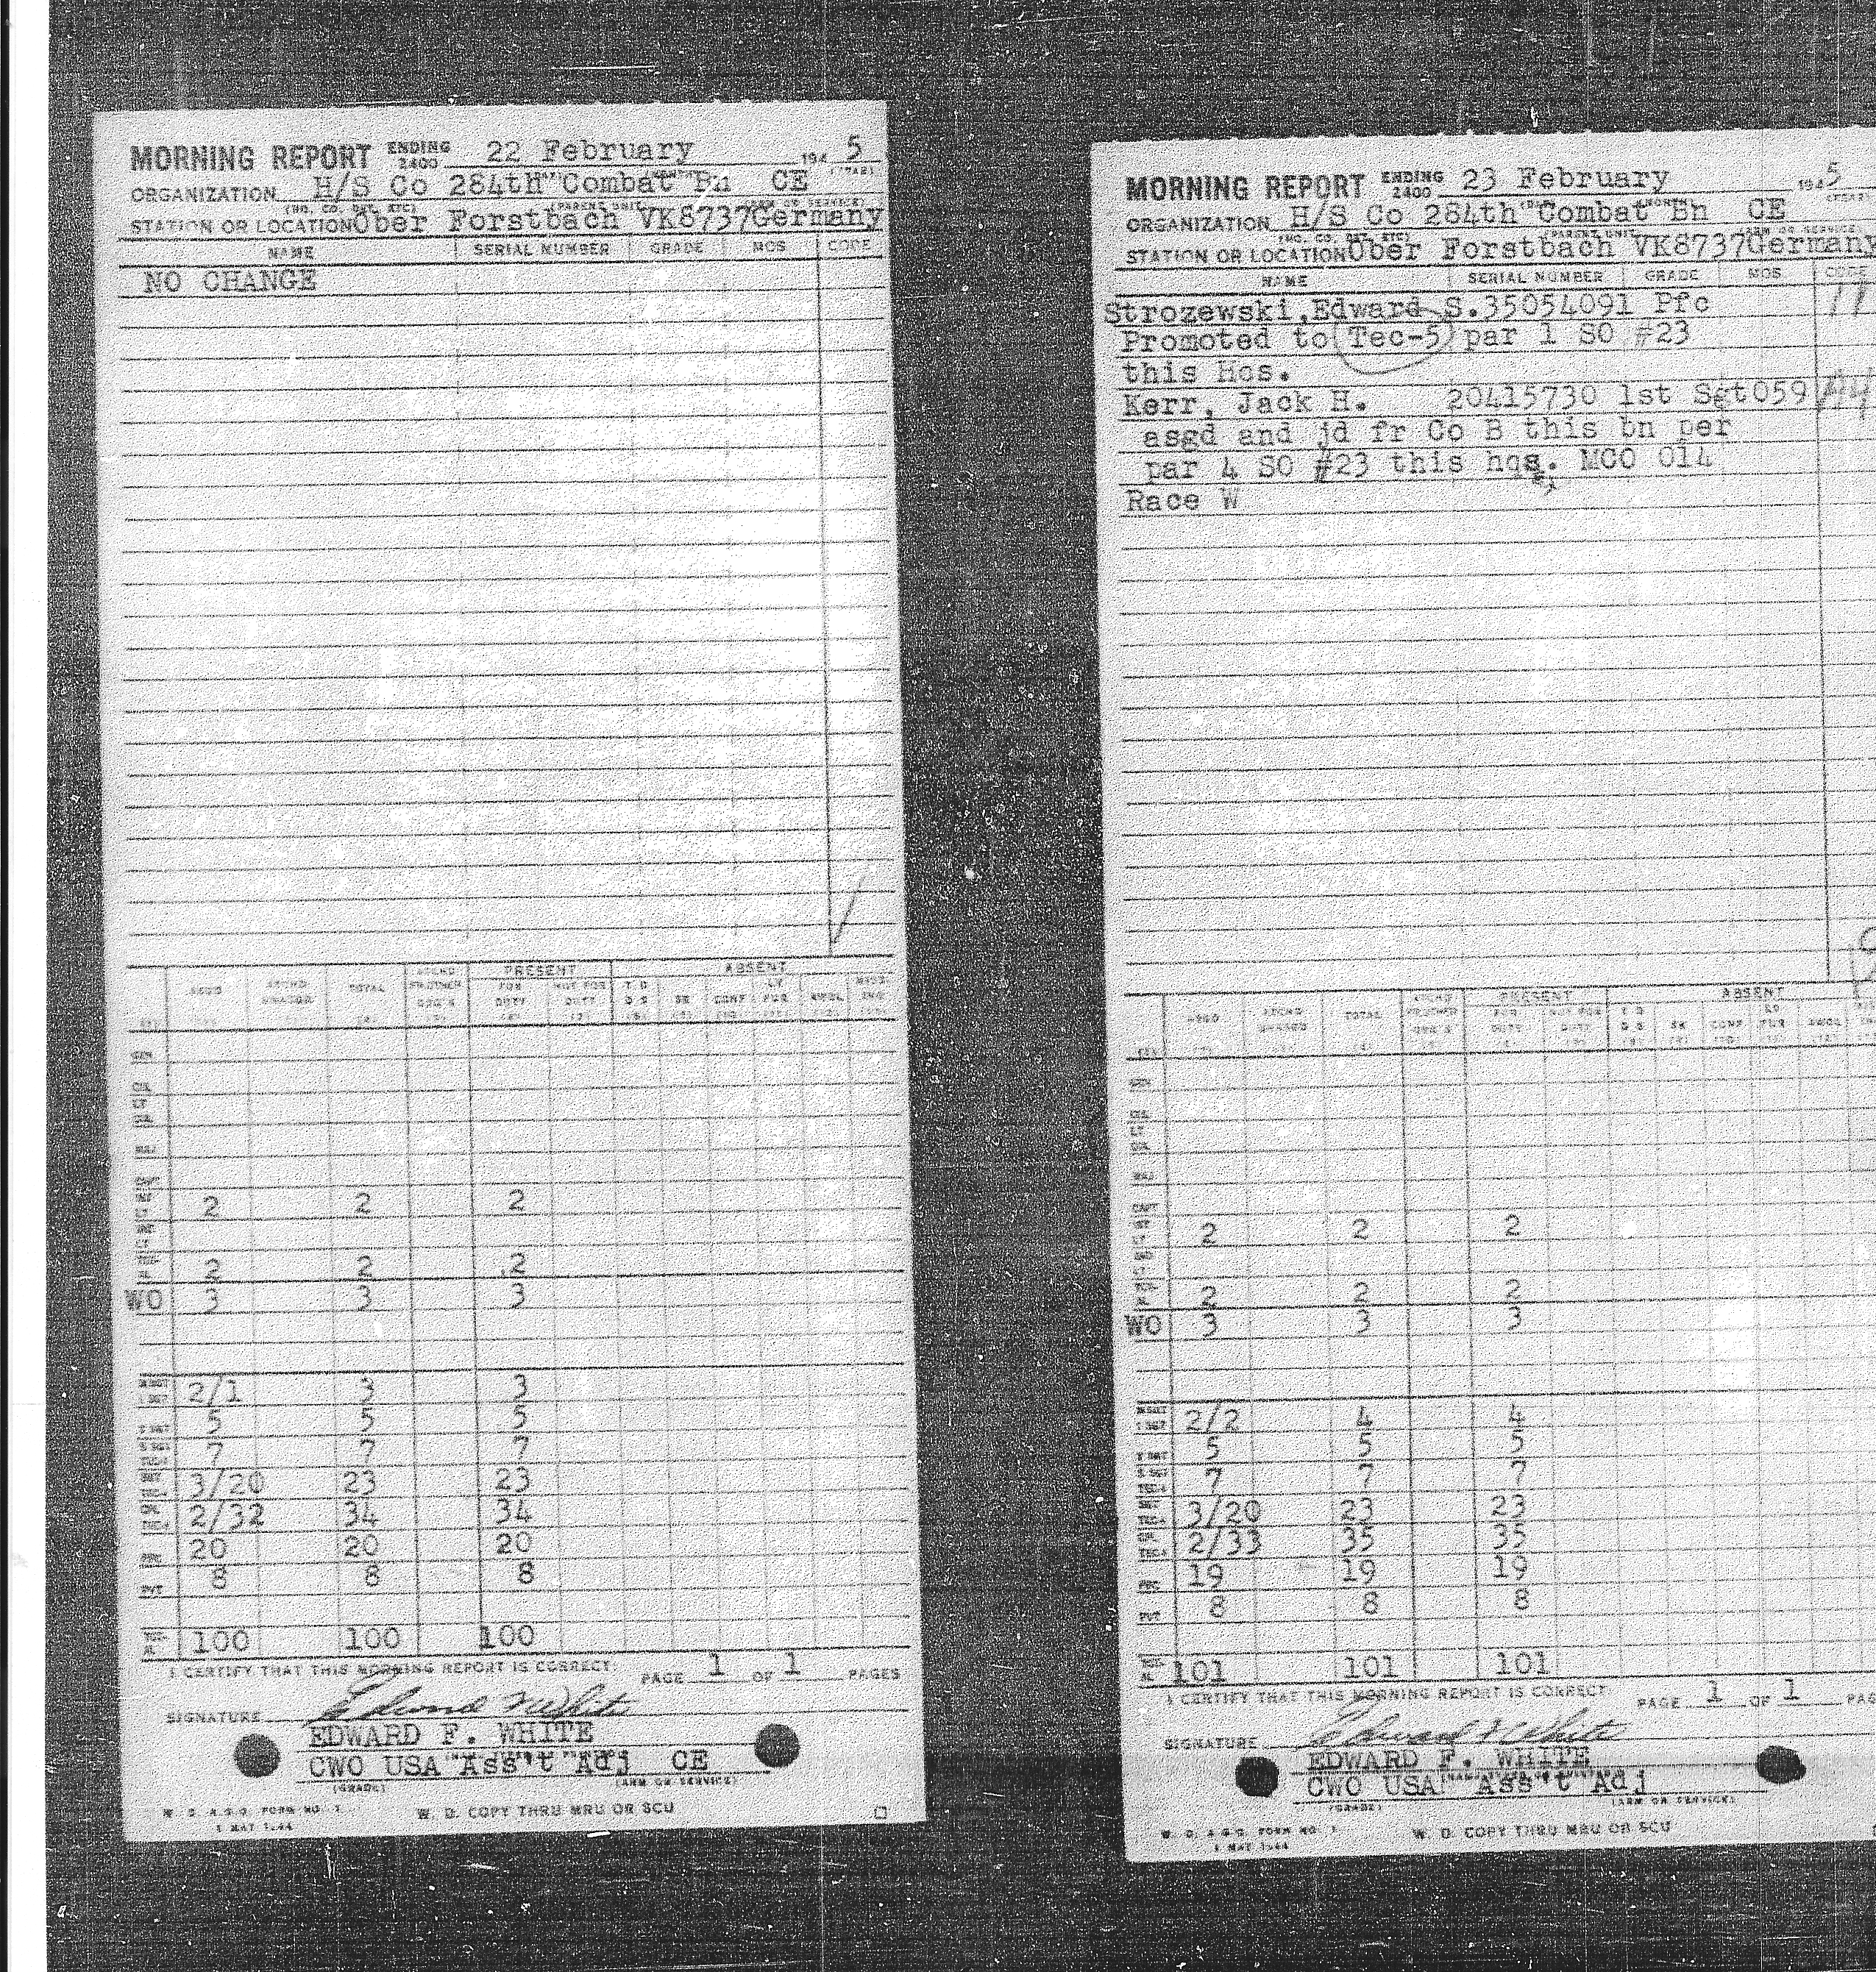 MORNING REPORT ENDING 2400 22 February 194 5
ORGANIZATION H/S Co 284th Combat Bn CE
STATION OR LOCATION Ober Forstbach VK8737 Germany
NAME SERIAL NUMBER GRADE MOS CODE
NO CHANGE
PRESENT ABSENT
ASGD TOTAL FOR DUTY NOT FOR DUTY SK CONF FUR AWOL
2 2 2
2 2 2
WO 3 3 3
2/1 3 3
5 5 5
7 7 7
3/20 23 23
2/32 34 34
20 20 20
8 8 8
100 100 100
I CERTIFY THAT THIS MORNING REPORT IS CORRECT: PAGE 1 OF 1 PAGES
SIGNATURE Edward F White
EDWARD F. WHITE
CWO USA Ass't Adj CE
(GRADE) (ARM OR SERVICE)
W. D. A.G.O. FORM NO. 1 W. D. COPY THRU MRU OR SCU
1 MAY 1944
MORNING REPORT ENDING 2400 23 February 194 5
ORGANIZATION H/S Co 284th Combat Bn CE
STATION OR LOCATION Ober Forstbach VK8737 Germany
NAME SERIAL NUMBER GRADE MOS CODE
Strozewski,Edward S.35054091 Pfc 11
Promoted to Tec-5 par 1 SO #23
this Hqs.
Kerr, Jack H. 20415730 1st Sgt 059
asgd and jd fr Co B this bn per
par 4 SO #23 this hqs. MCO 014
Race W
PRESENT ABSENT
ASGD TOTAL FOR DUTY NOT FOR DUTY SK CONF FUR AWOL
2 2 2
2 2 2
WO 3 3 3
2/2 4 4
5 5 5
7 7 7
3/20 23 23
2/33 35 35
19 19 19
8 8 8
101 101 101
I CERTIFY THAT THIS MORNING REPORT IS CORRECT: PAGE 1 OF 1 PAG
SIGNATURE Edward F White
EDWARD F. WHITE
CWO USA Ass't Adj
(GRADE) (ARM OR SERVICE)
W. D. A.G.O. FORM NO. 1 W. D. COPY THRU MRU OR SCU
1 MAY 1944